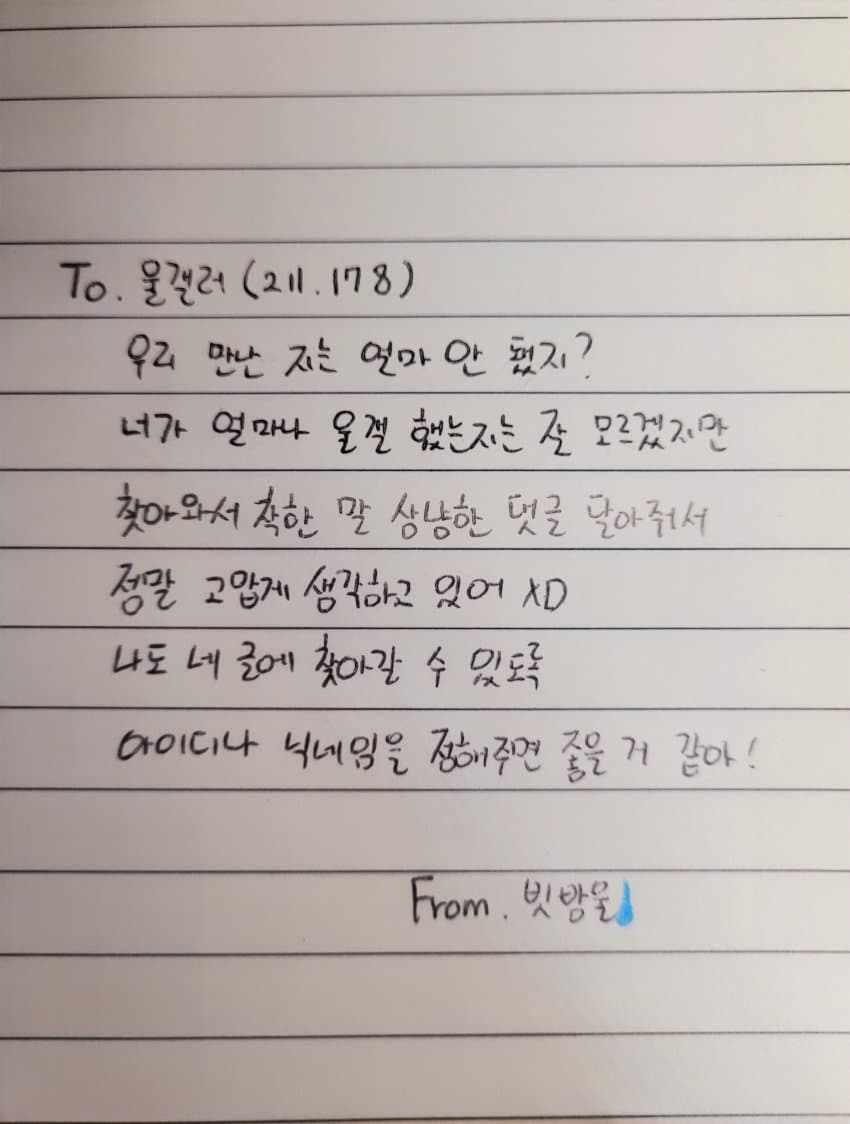 To. 울갤러 (211.178)
우리 만난 지는 얼마 안 됐지?
너가 얼마나 울갤 했는지는 잘 모르겠지만
찾아와서 착한 말 상냥한 댓글 달아줘서
정말 고맙게 생각하고 있어 XD
나도 네 글에 찾아갈 수 있도록
아이디나 닉네임을 정해주면 좋을 거 같아!
From. 빗방울